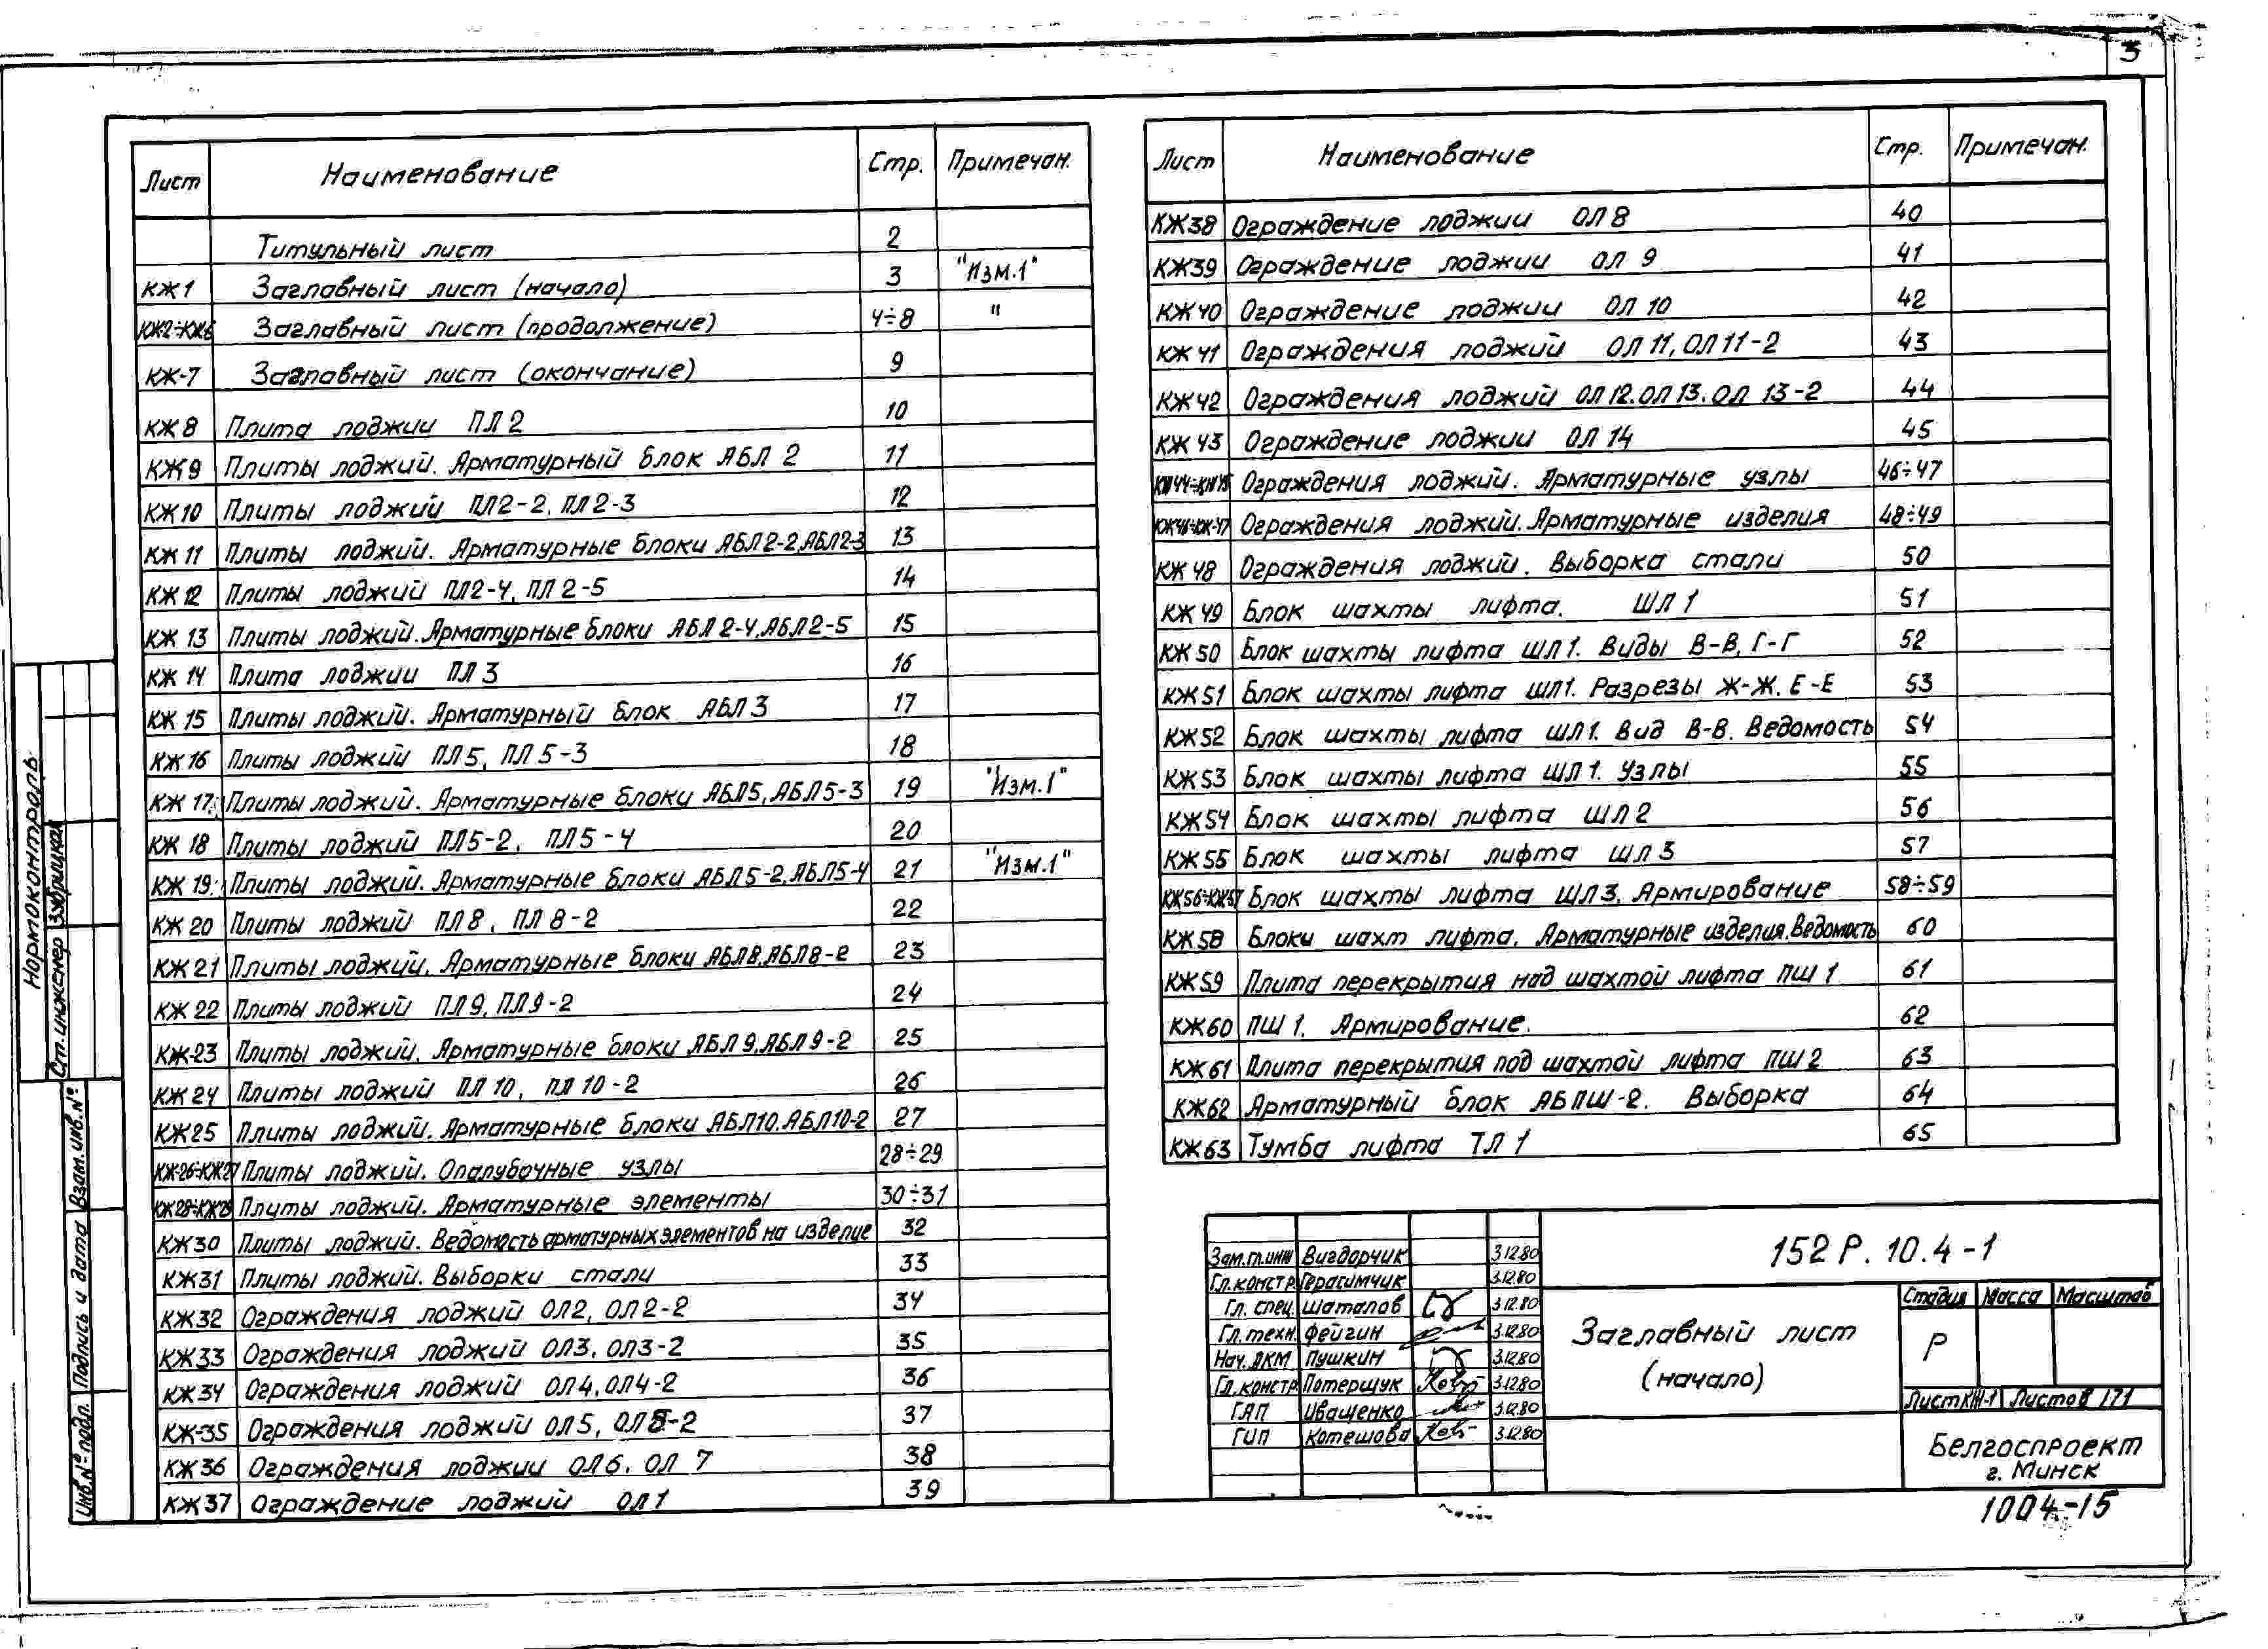 3
Лист Наименование Стр. Примечан.
Титульный лист 2
КЖ1 Заглавный лист (начало) 3 "Изм.1"
КЖ2÷КЖ6 Заглавный лист (продолжение) 4÷8 "
КЖ-7 Заглавный лист (окончание) 9
КЖ8 Плита лоджии ПЛ2 10
КЖ9 Плиты лоджий. Арматурный блок АБЛ 2 11
КЖ10 Плиты лоджий ПЛ2-2, ПЛ2-3 12
КЖ 11 Плиты лоджий. Арматурные блоки АБЛ2-2,АБЛ2-3 13
КЖ12 Плиты лоджий ПЛ2-4, ПЛ 2-5 14
КЖ 13 Плиты лоджий. Арматурные блоки АБЛ 2-4,АБЛ2-5 15
КЖ 14 Плита лоджии ПЛ 3 16
КЖ 15 Плиты лоджий. Арматурный блок АБЛ 3 17
КЖ16 Плиты лоджий ПЛ5, ПЛ 5-3 18
КЖ 17 Плиты лоджий. Арматурные блоки АБЛ5, АБЛ5-3 19 "Изм.1"
КЖ 18 Плиты лоджий ПЛ5-2, ПЛ5-4 20
КЖ 19 Плиты лоджий. Арматурные блоки АБЛ5-2, АБЛ5-4 21 "Изм.1"
КЖ 20 Плиты лоджий ПЛ8, ПЛ 8-2 22
КЖ21 Плиты лоджий. Арматурные блоки АБЛ8,АБЛ8-2 23
КЖ 22 Плиты лоджий ПЛ9, ПЛ9-2 24
КЖ-23 Плиты лоджий. Арматурные блоки АБЛ 9,АБЛ 9-2 25
КЖ 24 Плиты лоджий ПЛ 10, ПЛ 10-2 26
КЖ25 Плиты лоджий. Арматурные блоки АБЛ10,АБЛ10-2 27
КЖ-26÷КЖ27 Плиты лоджий. Опалубочные узлы 28÷29
КЖ28÷КЖ29 Плиты лоджий. Арматурные элементы 30÷31
КЖ30 Плиты лоджий. Ведомость арматурных элементов на изделие 32
КЖ31 Плиты лоджий. Выборки стали 33
КЖ32 Ограждения лоджий ОЛ2, ОЛ2-2 34
КЖ33 Ограждения лоджий ОЛ3, ОЛ3-2 35
КЖ34 Ограждения лоджий ОЛ4, ОЛ4-2 36
КЖ-35 Ограждения лоджий ОЛ5, ОЛ5-2 37
КЖ36 Ограждения лоджии ОЛ6, ОЛ 7 38
КЖ37 Ограждение лоджий ОЛ1 39
Лист Наименование Стр. Примечан.
КЖ38 Ограждение лоджии ОЛ8 40
КЖ39 Ограждение лоджии ОЛ 9 41
КЖ40 Ограждение лоджии ОЛ 10 42
КЖ 41 Ограждения лоджий ОЛ 11, ОЛ 11-2 43
КЖ42 Ограждения лоджий ОЛ 12. ОЛ 13. ОЛ 13-2 44
КЖ 43 Ограждение лоджии ОЛ 14 45
КЖ44÷КЖ45 Ограждения лоджий. Арматурные узлы 46÷47
КЖ46÷КЖ-47 Ограждения лоджий. Арматурные изделия 48÷49
КЖ 48 Ограждения лоджий. Выборка стали 50
КЖ 49 Блок шахты лифта. ШЛ 1 51
КЖ 50 Блок шахты лифта ШЛ 1. Виды В-В, Г-Г 52
КЖ51 Блок шахты лифта ШЛ1. Разрезы Ж-Ж. Е-Е 53
КЖ52 Блок шахты лифта ШЛ1. Вид В-В. Ведомость 54
КЖ53 Блок шахты лифта ШЛ 1. Узлы 55
КЖ54 Блок шахты лифта ШЛ2 56
КЖ55 Блок шахты лифта ШЛ 3 57
КЖ56÷КЖ57 Блок шахты лифта ШЛ3. Армирование 58÷59
КЖ58 Блоки шахт лифта. Арматурные изделия. Ведомость 60
КЖ59 Плита перекрытия над шахтой лифта ПШ 1 61
КЖ60 ПШ 1. Армирование. 62
КЖ61 Плита перекрытия под шахтой лифта ПШ 2 63
КЖ62 Арматурный блок АБПШ-2. Выборка 64
КЖ63 Тумба лифта ТЛ 1 65
Нормоконтроль
Ст. инженер
Взам.инв.№
Подпись и дата
Инв.№ подл.
Зам.гл.инж Вигдорчик 3.12.80
Гл.констр. Герасимчик 3.12.80
Гл. спец. Шаталов 3.12.80
Гл.техн. Фейгин 3.12.80
Нач. АКМ Пушкин 3.12.80
Гл.констр. Потерщук 3.12.80
ГАП Иващенко 3.12.80
ГИП Котешова 3.12.80
152 Р. 10.4-1
Заглавный лист
(начало)
Стадия Масса Масштаб
Р
Лист КЖ-1 Листов 171
Белгоспроект
г. Минск
1004-15